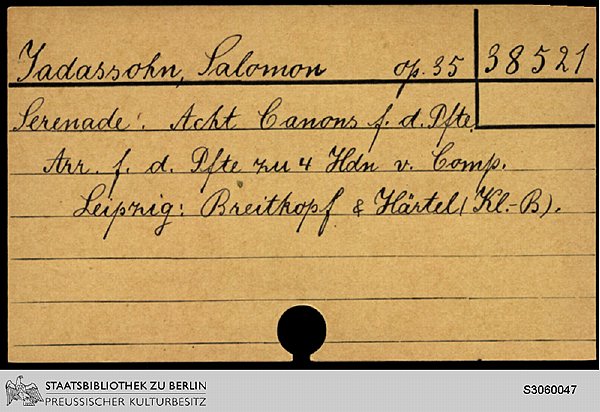 Jadassohn, Salomon op. 35 38521
Serenade. Acht Canons f. d. Pfte.
Arr. f. d. Pfte zu 4 Hdn v. Comp.
Leipzig: Breitkopf & Härtel (Kl.-B).
STAATSBIBLIOTHEK ZU BERLIN
PREUSSISCHER KULTURBESITZ
S3060047